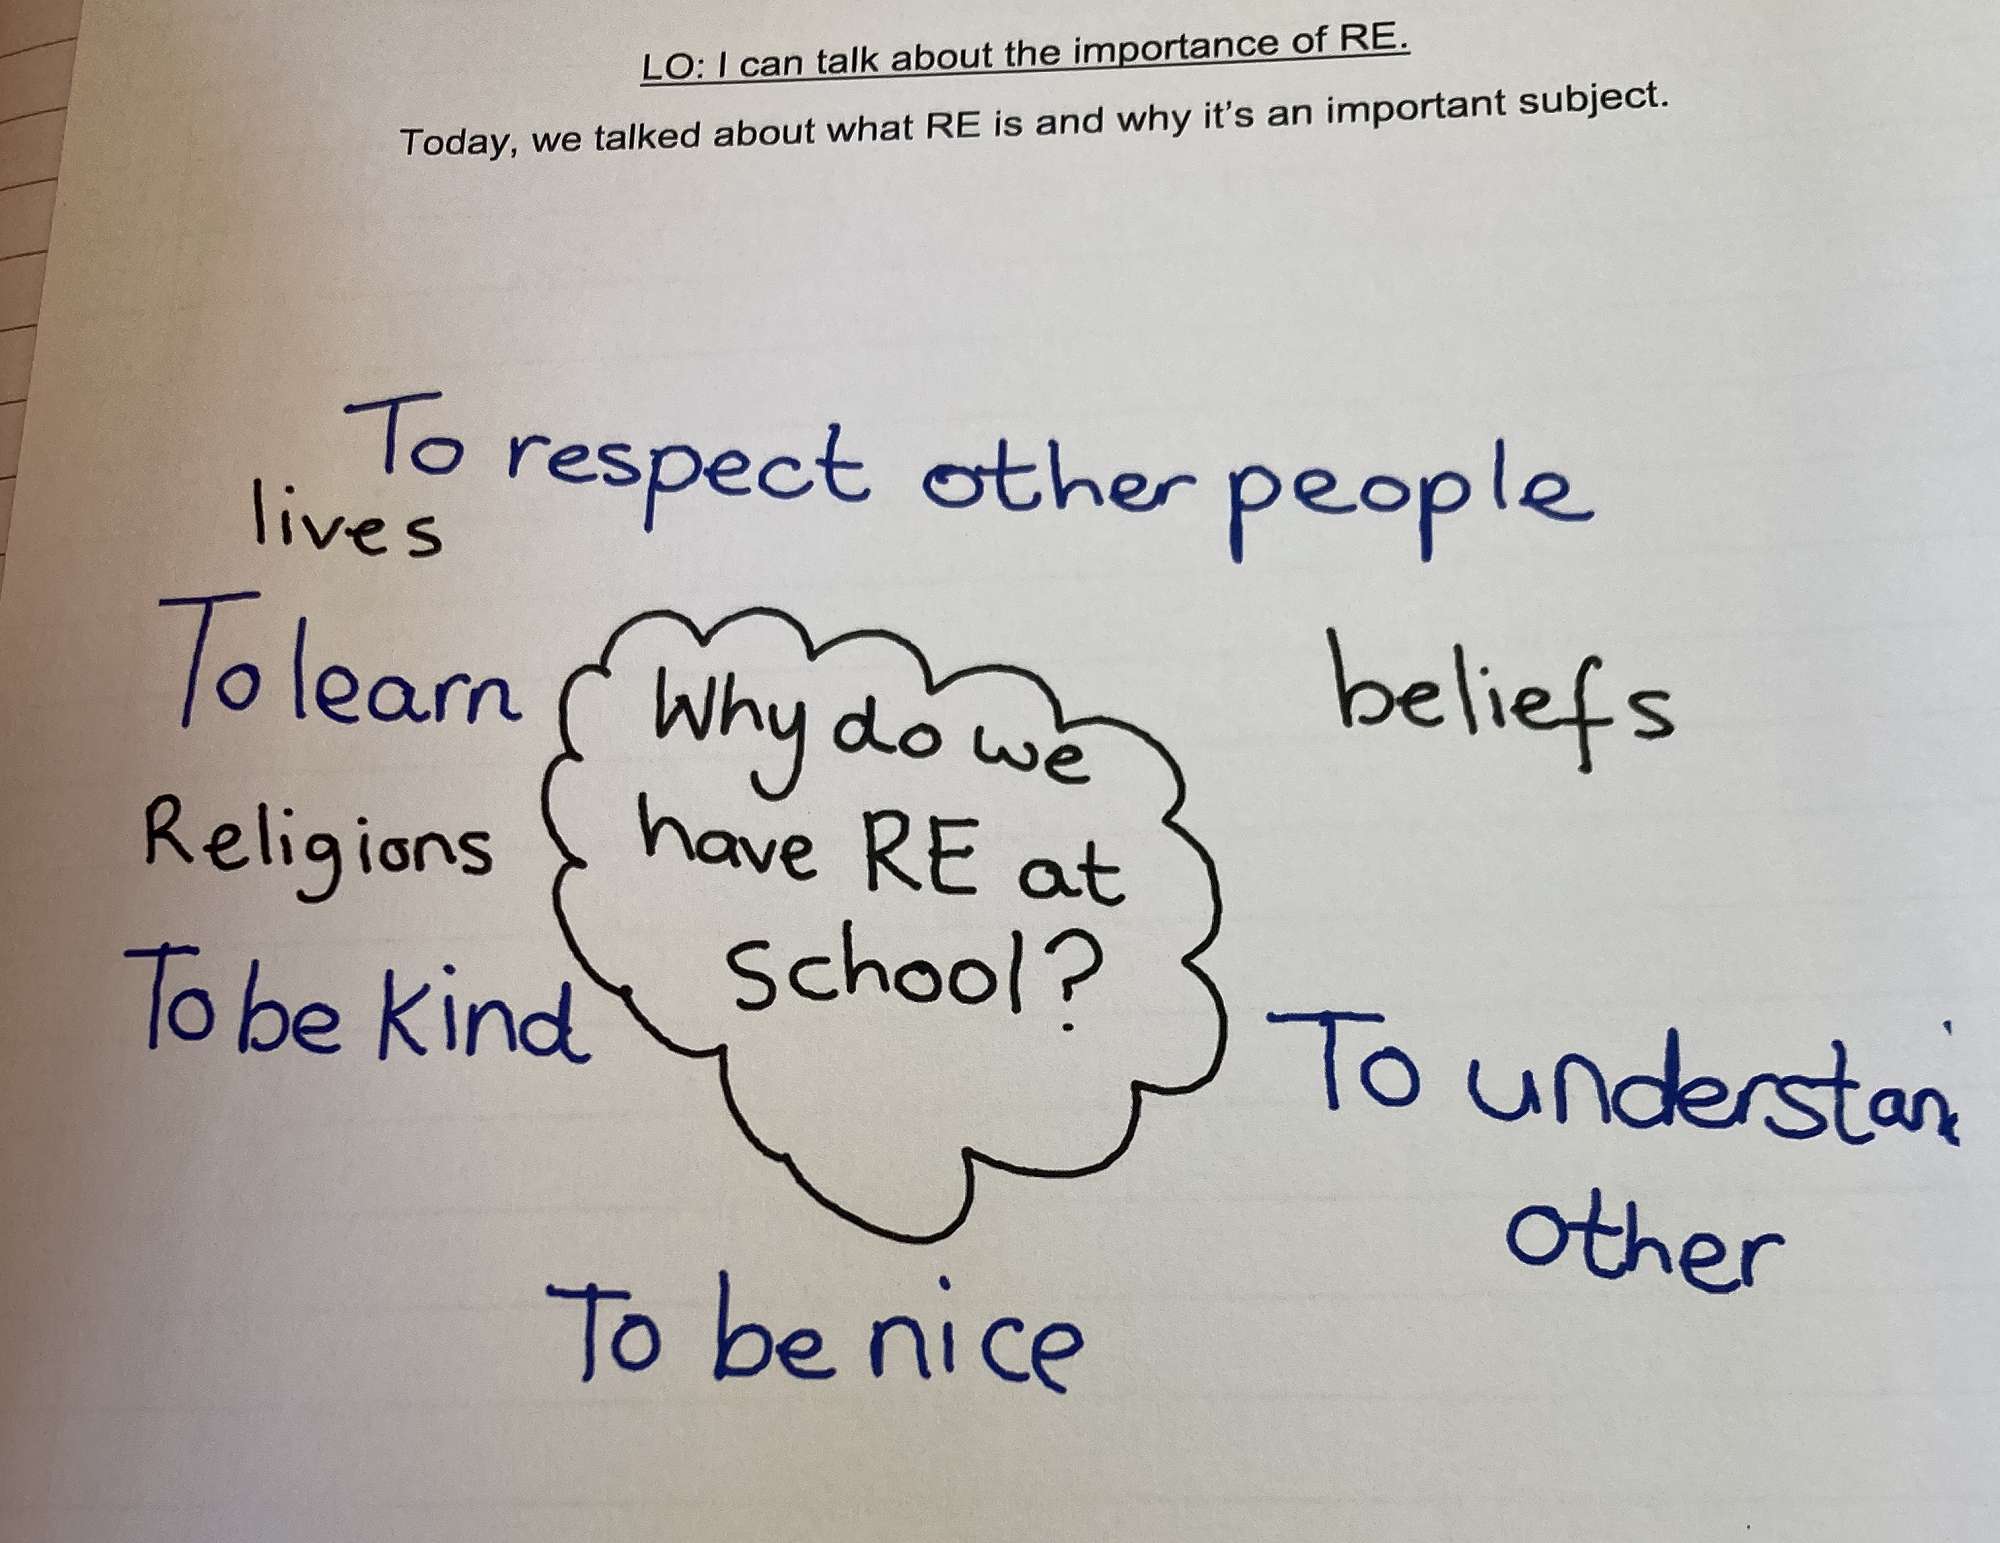 LO: I can talk about the importance of RE.
Today, we talked about what RE is and why it's an important subject.
To respect other people
lives
To learn
Why do we
have RE at
school?
beliefs
Religions
To be kind
To understan
other
To be nice